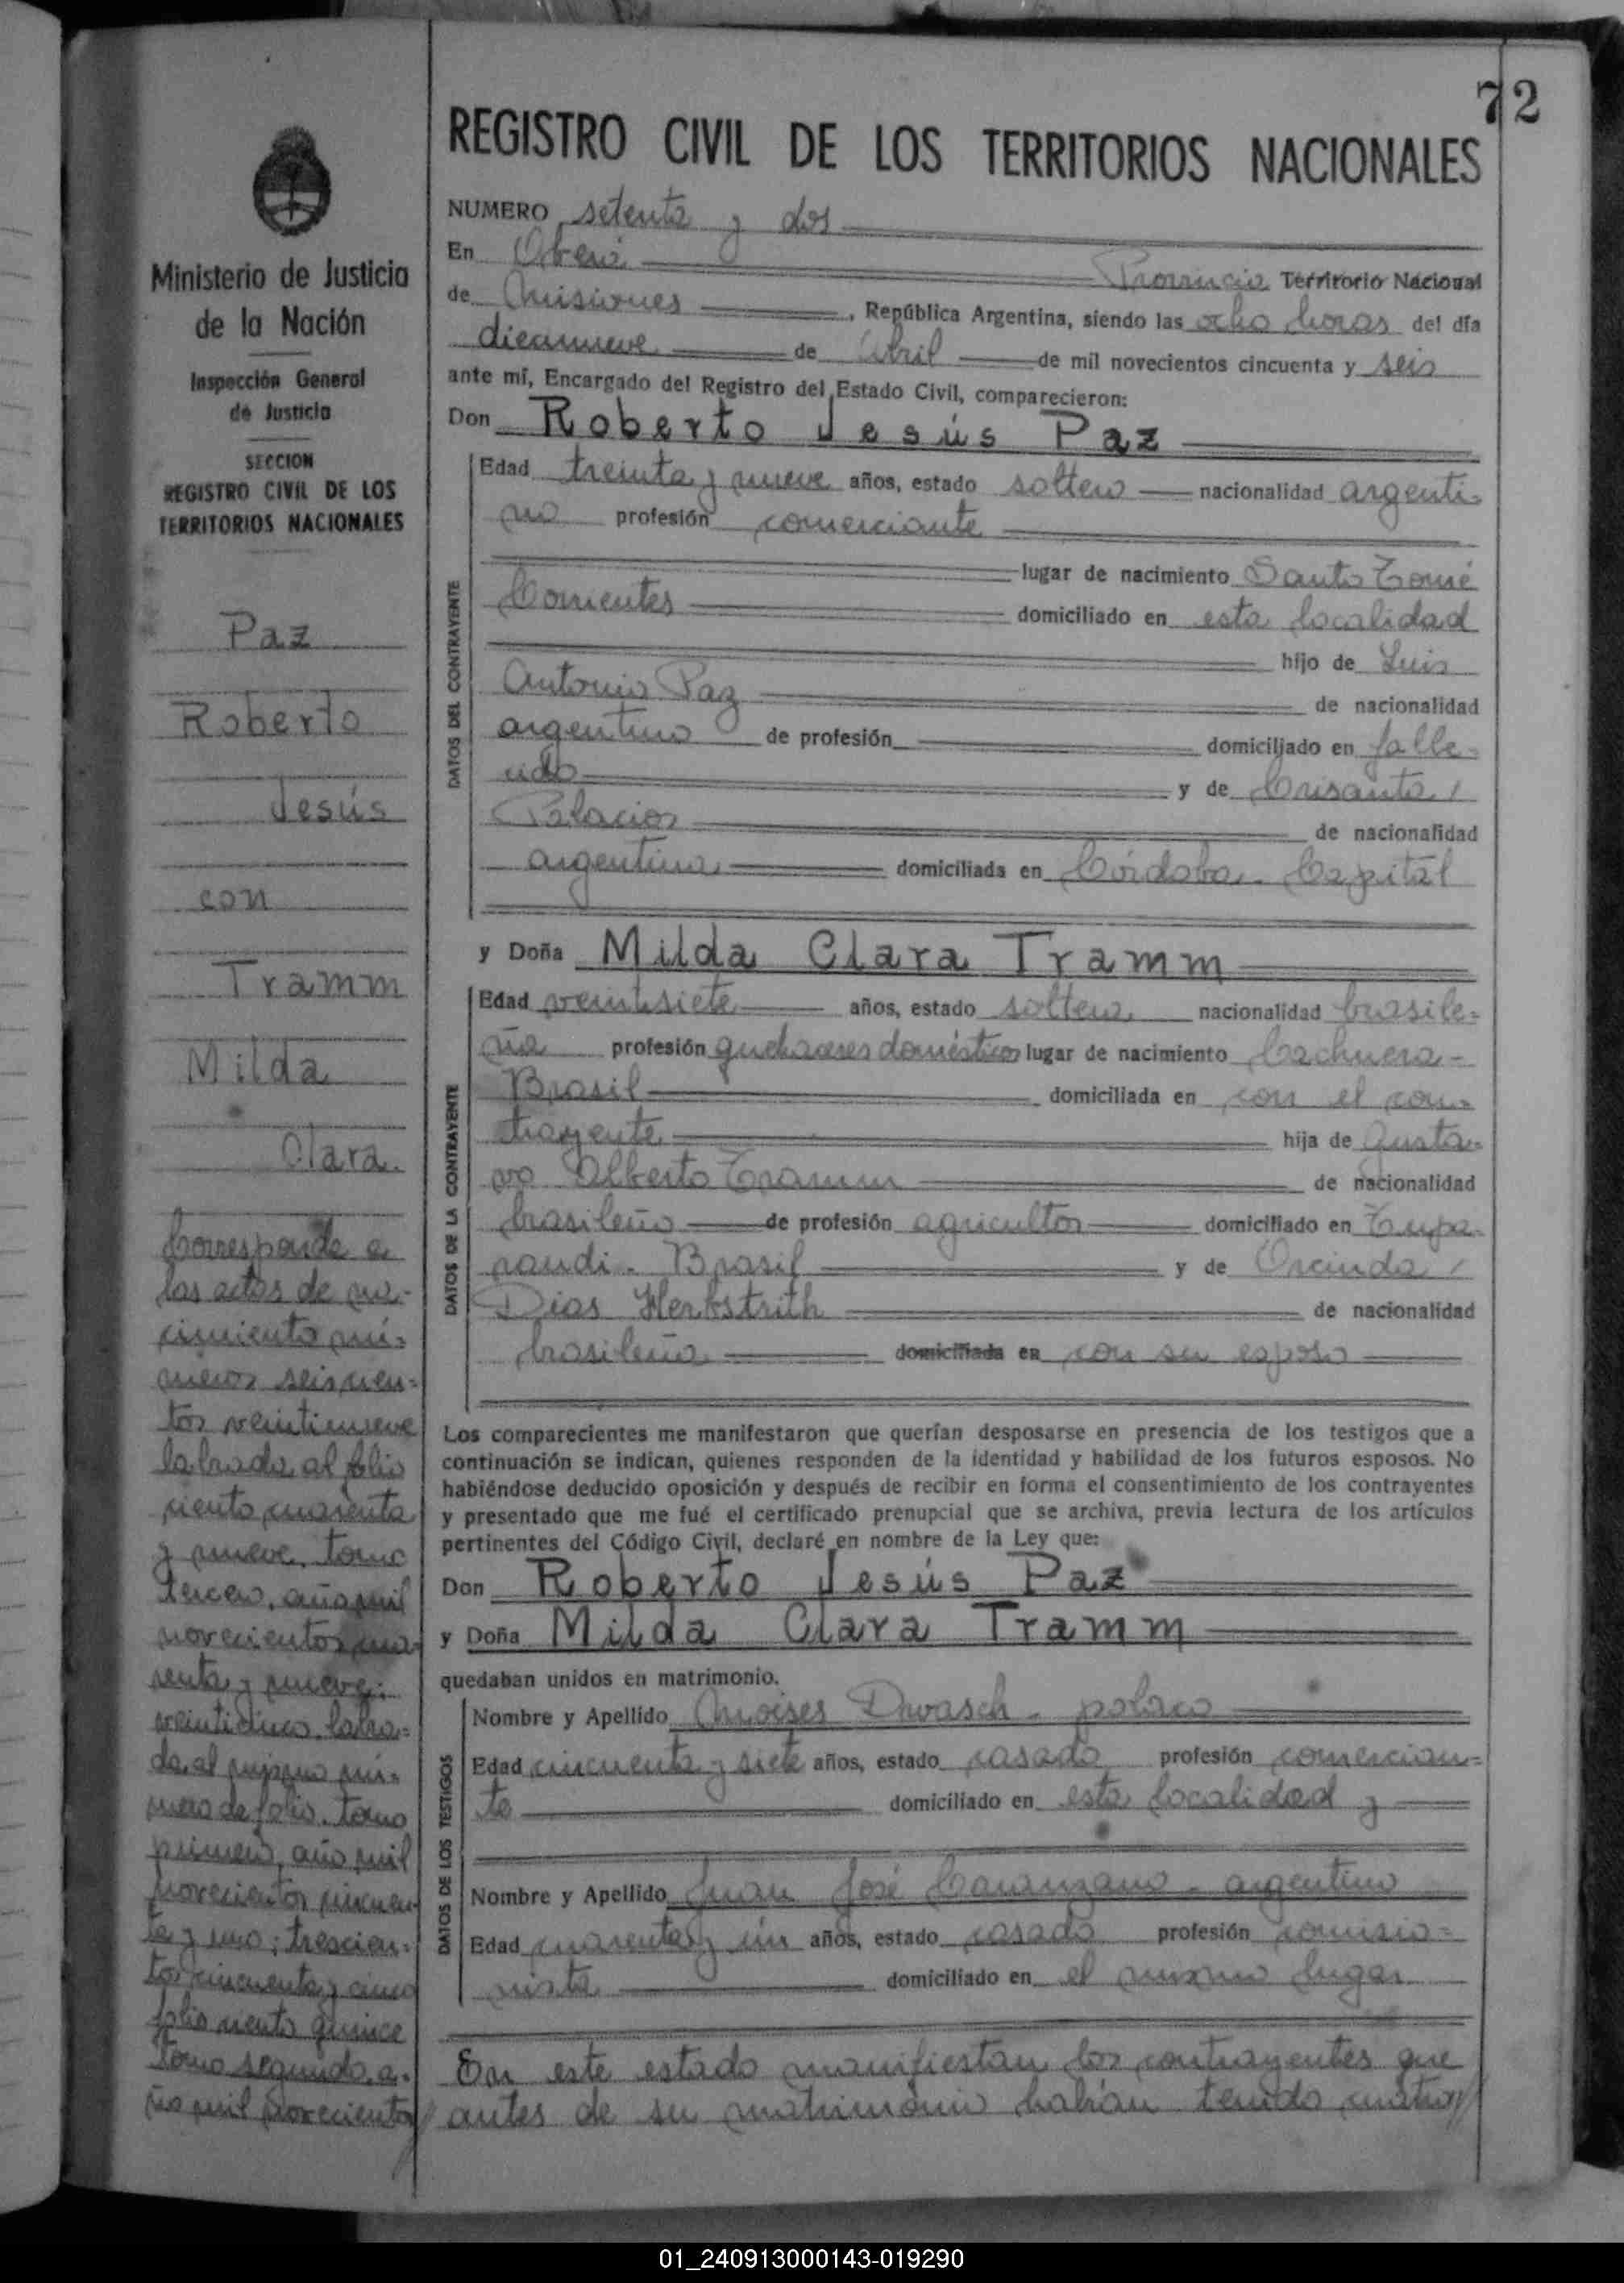 72
REGISTRO CIVIL DE LOS TERRITORIOS NACIONALES
Ministerio de Justicia
de la Nación
Inspección General
de Justicia
SECCION
REGISTRO CIVIL DE LOS
TERRITORIOS NACIONALES
Paz
Roberto
Jesús
con
Tramm
Milda
Clara.
Corresponde a
las actas de na-
cimiento nú-
meros seiscien-
tos veintinueve
labrada al folio
ciento cuarenta
y nueve, tomo
tercero, año mil
novecientos cua-
renta y nueve;
veinticinco labra-
da al mismo nú-
mero de folio, tomo
primero, año mil
novecientos cincuen-
ta y uno; trescien-
tos cincuenta y cinco
folio ciento quince
tomo segundo, a-
ño mil novecientos//
NUMERO setenta y dos
En Oberá Provincia Territorio Nacional
de Misiones , República Argentina, siendo las ocho horas del día
diecinueve de Abril de mil novecientos cincuenta y seis
ante mí, Encargado del Registro del Estado Civil, comparecieron:
Don Roberto Jesús Paz
DATOS DEL CONTRAYENTE
Edad treinta y nueve años, estado soltero nacionalidad argenti-
no profesión comerciante
lugar de nacimiento Santo Tomé
Corrientes domiciliado en esta localidad
hijo de Luis
Antonio Paz de nacionalidad
argentino de profesión domiciliado en falle-
cido y de Crisanta /
Palacios de nacionalidad
argentina domiciliada en Córdoba - Capital
y Doña Milda Clara Tramm
DATOS DE LA CONTRAYENTE
Edad veintisiete años, estado soltera nacionalidad brasile-
ña profesión quehaceres domésticos lugar de nacimiento Cachuera -
Brasil domiciliada en con el con-
trayente hija de Gusta-
vo Alberto Tramm de nacionalidad
brasileño de profesión agricultor domiciliado en Tupa-
randi - Brasil y de Orcinda /
Dias Herbstrith de nacionalidad
brasileña domiciliada en con su esposo
Los comparecientes me manifestaron que querían desposarse en presencia de los testigos que a
continuación se indican, quienes responden de la identidad y habilidad de los futuros esposos. No
habiéndose deducido oposición y después de recibir en forma el consentimiento de los contrayentes
y presentado que me fué el certificado prenupcial que se archiva, previa lectura de los artículos
pertinentes del Código Civil, declaré en nombre de la Ley que:
Don Roberto Jesús Paz
y Doña Milda Clara Tramm
quedaban unidos en matrimonio.
DATOS DE LOS TESTIGOS
Nombre y Apellido Moises Dwasch - polaco
Edad cincuenta y siete años, estado casado profesión comercian-
te domiciliado en esta localidad y
Nombre y Apellido Juan José Caranzano - argentino
Edad cuarenta y un años, estado casado profesión comisio-
nista domiciliado en el mismo lugar
En este estado manifiestan los contrayentes que
antes de su matrimonio habían tenido cuatro//
01_240913000143-019290